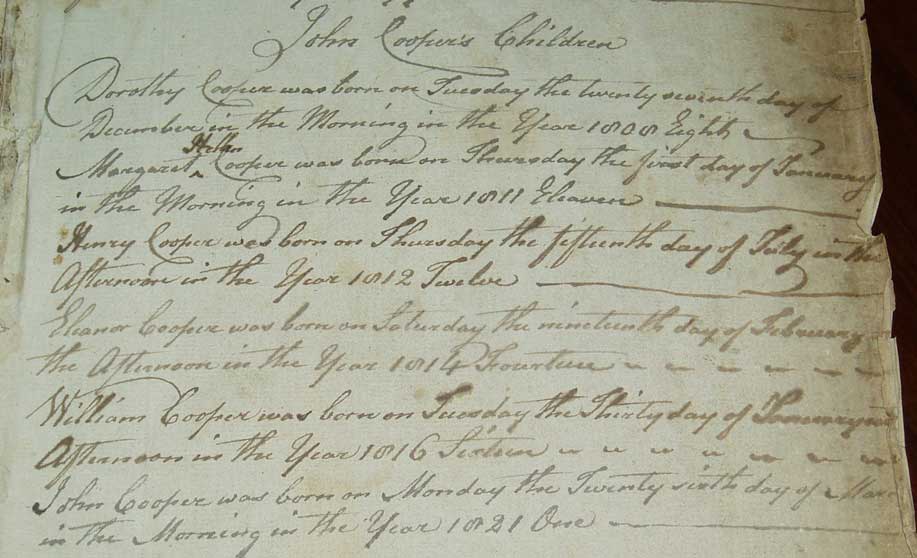 John Cooper's Children
Dorothy Cooper was born on Tuesday the twenty seventh day of
December in the Morning in the Year 1808 Eight
Margaret Cooper was born on Thursday the first day of January
in the Morning in the Year 1811 Eleaven
Henry Cooper was born on Thursday the fifteenth day of July in the
Afternoon in the Year 1812 Twelve
Eleanor Cooper was born on Saturday the nineteenth day of February
the Afternoon in the Year 1814 Fourteen
William Cooper was born on Tuesday the Thirty day of January
Afternoon in the Year 1816 Sixteen
John Cooper was born on Monday the Twenty sixth day of
in the Morning in the Year 1821 One